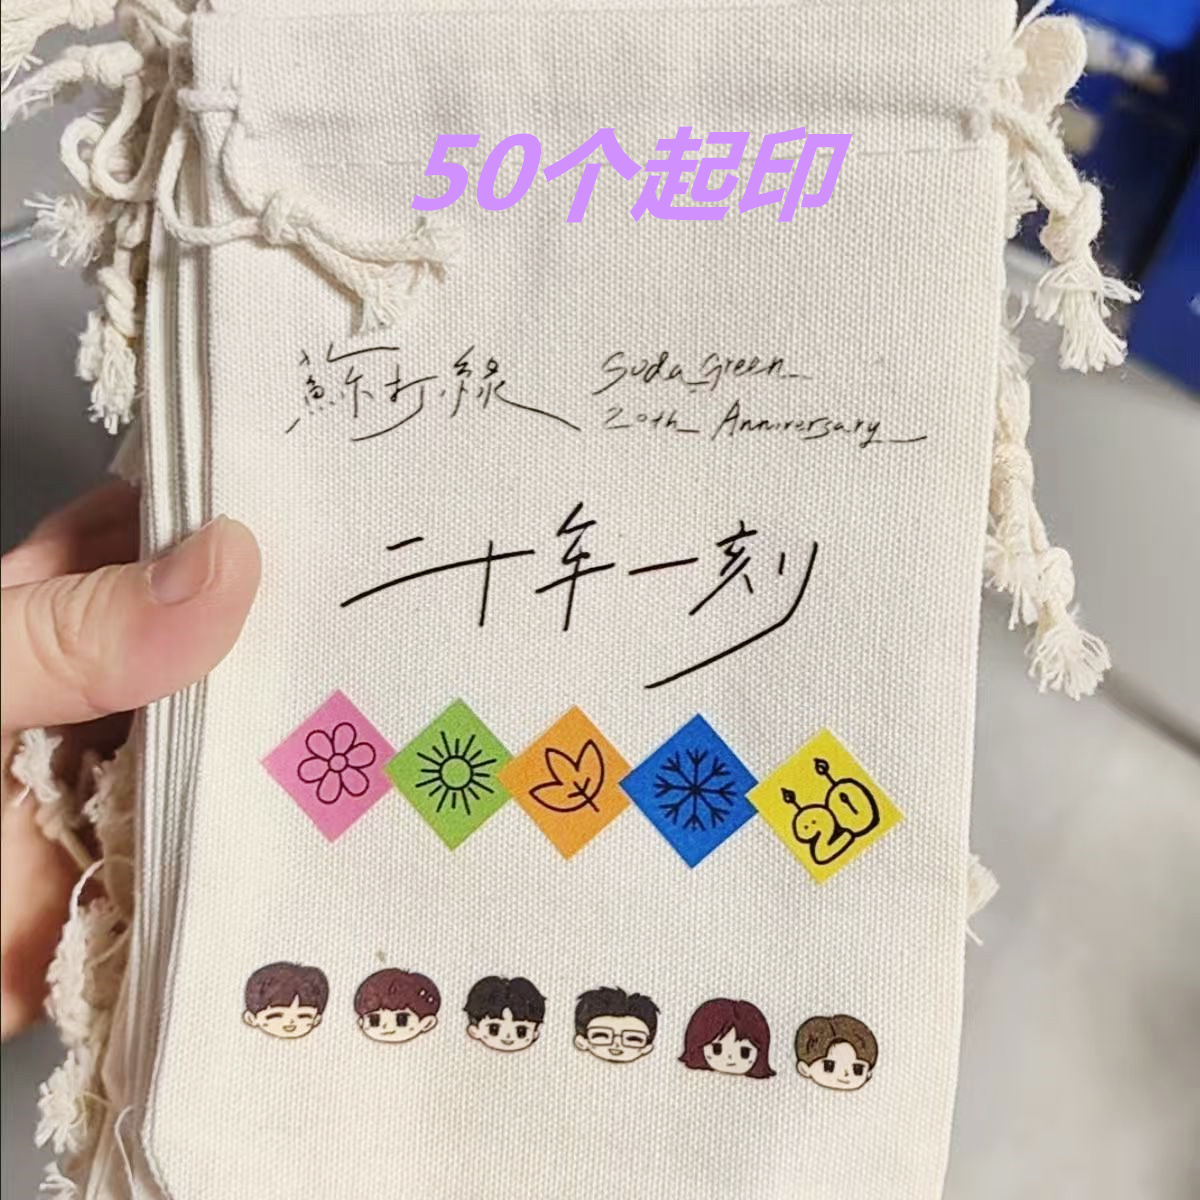 50个起印
蘇打綠
Soda_Green_
20th_Anniversary_
二十年一刻
20